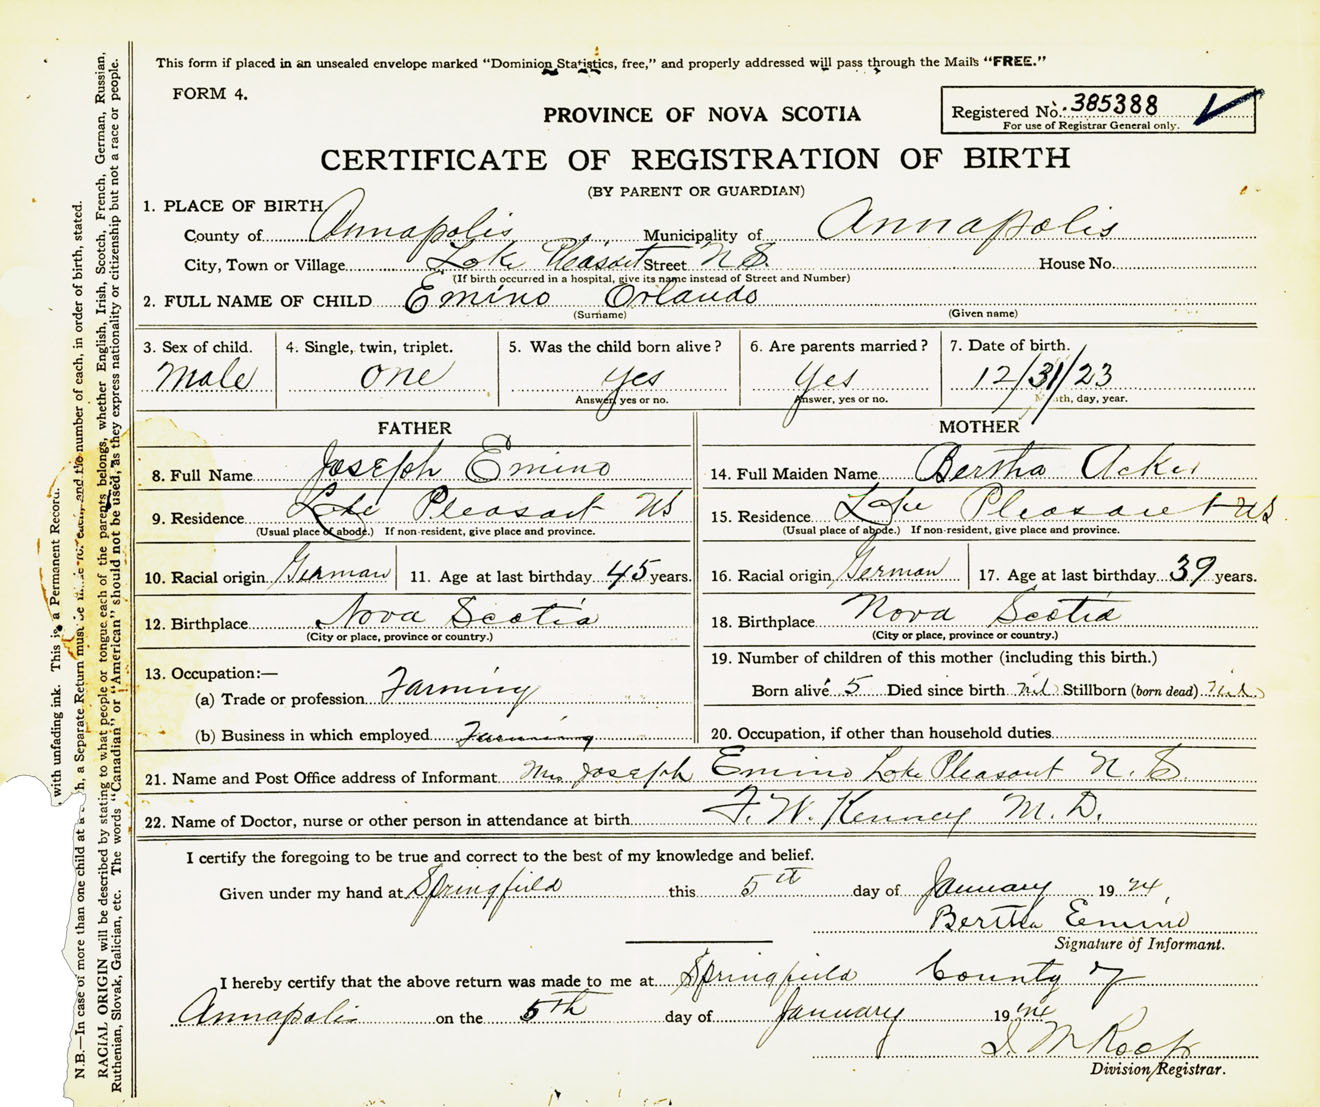 This form if placed in an unsealed envelope marked "Dominion Statistics, free," and properly addressed will pass through the Mails "FREE."
FORM 4.
PROVINCE OF NOVA SCOTIA
Registered No. 385388
For use of Registrar General only.
CERTIFICATE OF REGISTRATION OF BIRTH
(BY PARENT OR GUARDIAN)
1. PLACE OF BIRTH
County of Annapolis Municipality of Annapolis
City, Town or Village Lake Pleasant Street N S. House No.
(If birth occurred in a hospital, give its name instead of Street and Number)
2. FULL NAME OF CHILD Emino Orlando
(Surname) (Given name)
3. Sex of child. 4. Single, twin, triplet. 5. Was the child born alive? 6. Are parents married? 7. Date of birth.
Male one yes Yes 12/31/23
Answer, yes or no. Answer, yes or no. Month, day, year.
FATHER MOTHER
8. Full Name Joseph Emino 14. Full Maiden Name Bertha Acker
9. Residence Lake Pleasant NS 15. Residence Lake Pleasant NS
(Usual place of abode.) If non-resident, give place and province. (Usual place of abode.) If non-resident, give place and province.
10. Racial origin German 11. Age at last birthday 45 years. 16. Racial origin German 17. Age at last birthday 39 years.
12. Birthplace Nova Scotia 18. Birthplace Nova Scotia
(City or place, province or country.) (City or place, province or country.)
13. Occupation:— 19. Number of children of this mother (including this birth.)
(a) Trade or profession Farming Born alive 5 Died since birth nil Stillborn (born dead) nil
(b) Business in which employed Farming 20. Occupation, if other than household duties
21. Name and Post Office address of Informant Mrs Joseph Emino Lake Pleasant N. S.
22. Name of Doctor, nurse or other person in attendance at birth F. W. Kenney M. D.
I certify the foregoing to be true and correct to the best of my knowledge and belief.
Given under my hand at Springfield this 5th day of January 1924
Bertha Emino
Signature of Informant.
I hereby certify that the above return was made to me at Springfield County of
Annapolis on the 5th day of January 1924
Roop
Division Registrar.
with unfading ink. This is a Permanent Record.
N.B.—In case of more than one child at a h, a Separate Return must be made for each, and the number of each, in order of birth, stated.
RACIAL ORIGIN will be described by stating to what people or tongue each of the parents belongs, whether English, Irish, Scotch, French, German, Russian,
Ruthenian, Slovak, Galician, etc. The words "Canadian" or "American" should not be used, as they express nationality or citizenship but not a race or people.